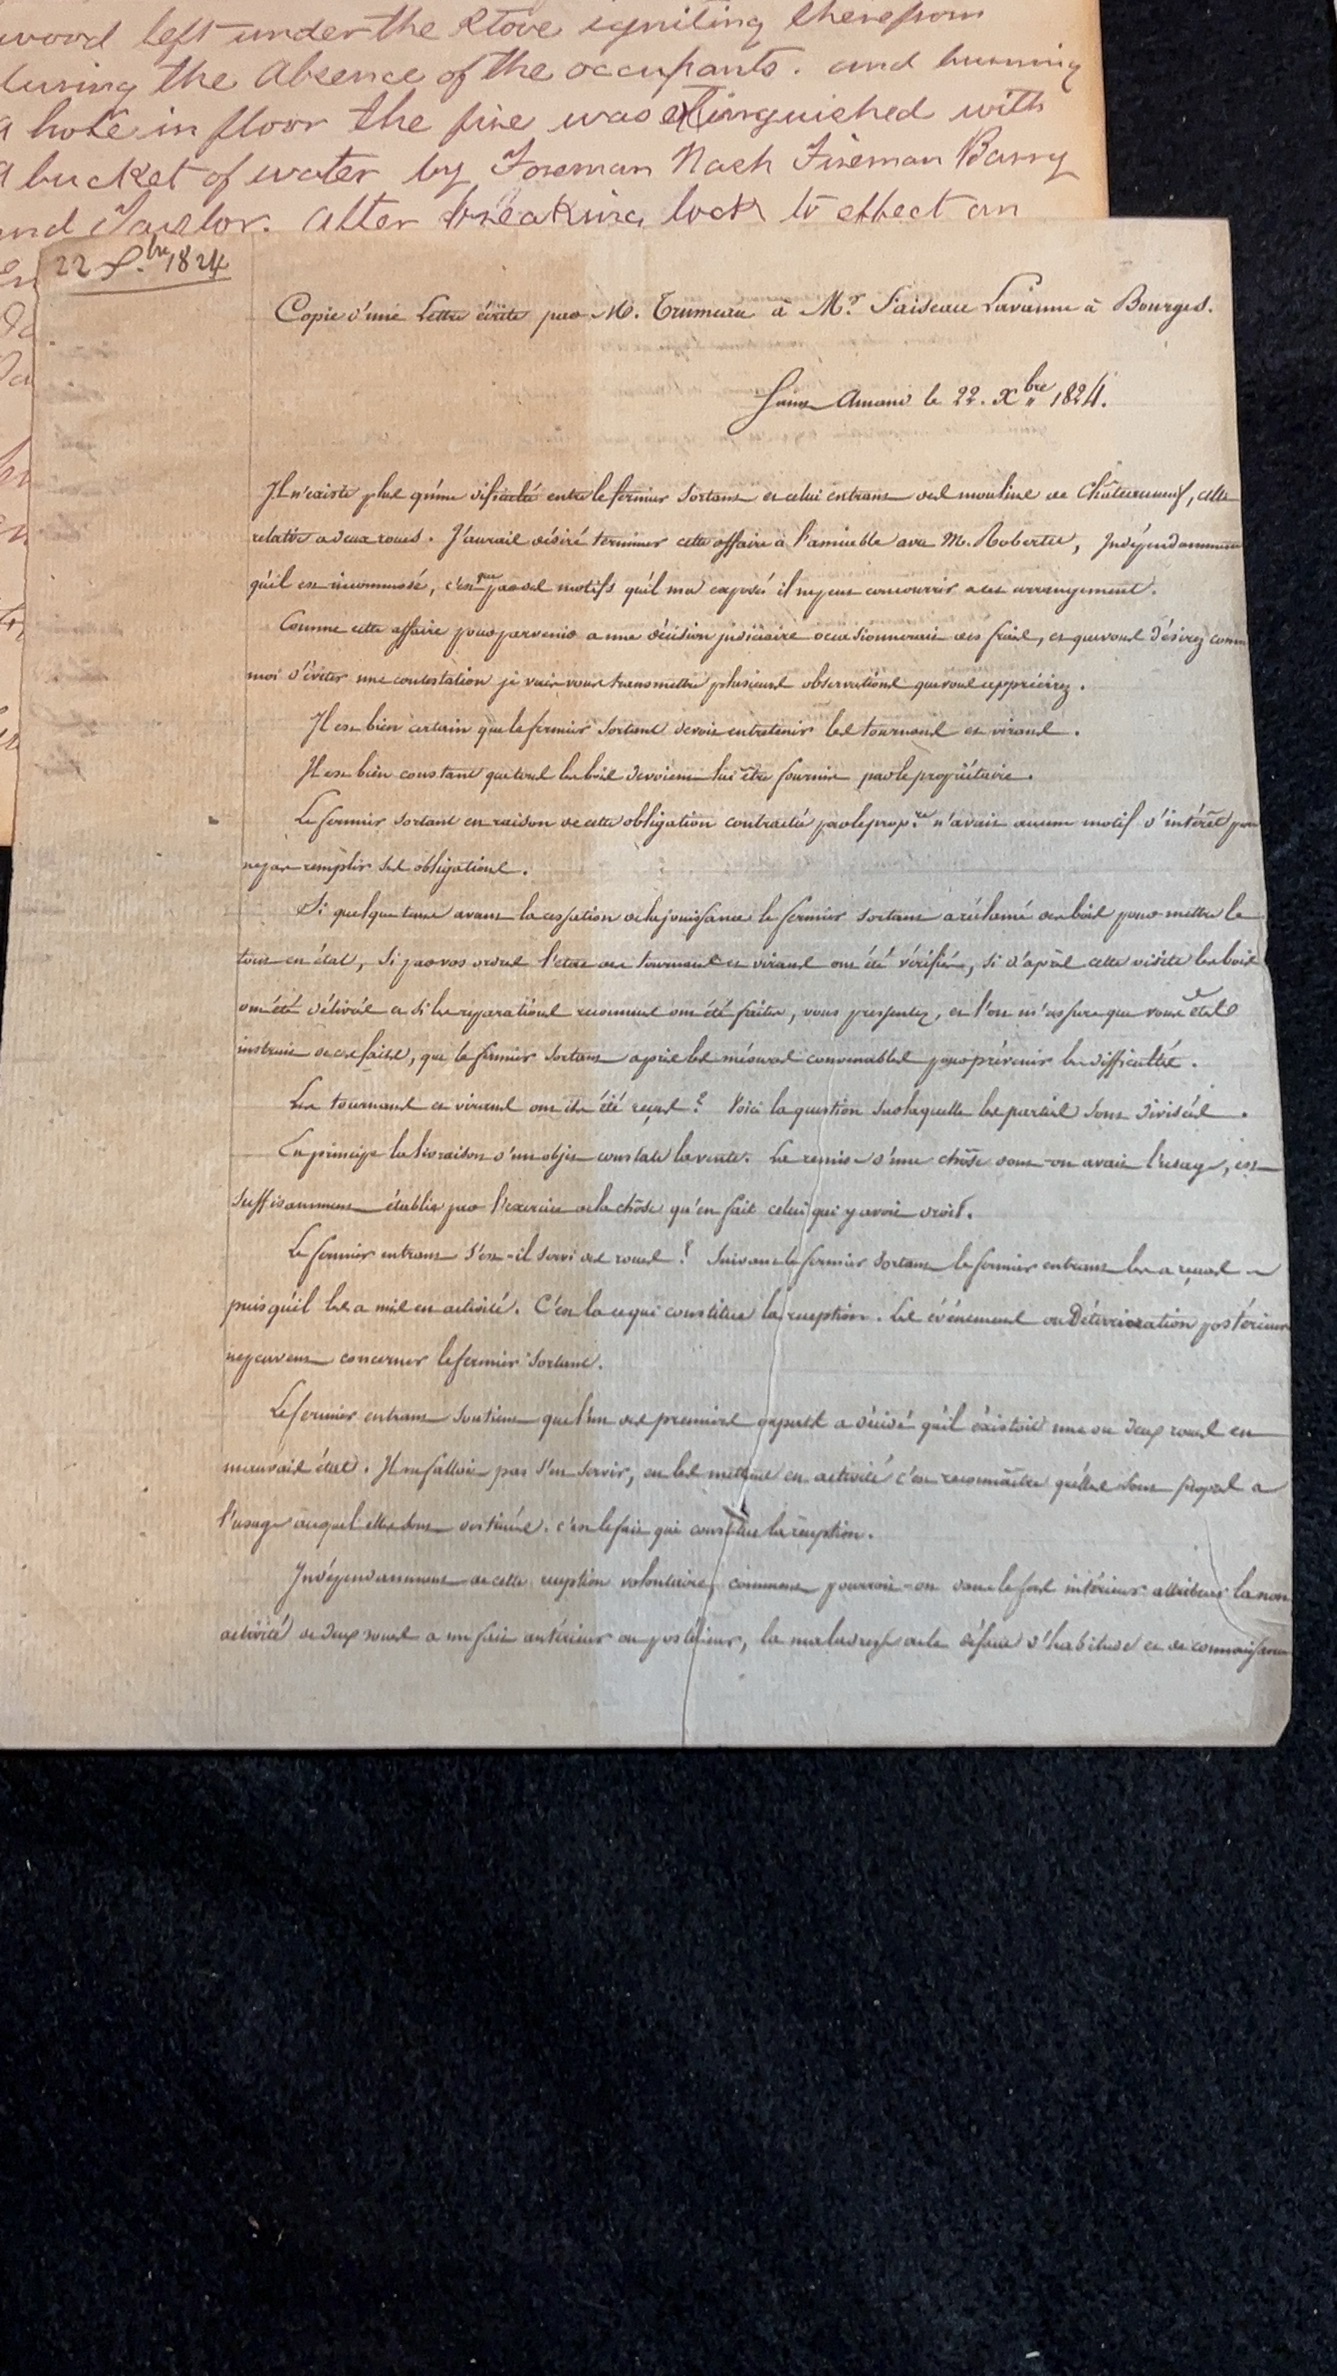 wood left under the Stove igniting therefrom
during the Absence of the occupants. and burning
a hole in floor the fire was extinguished with
a bucket of water by Foreman Nash Fireman Barry
and Taylor. after breaking lock to effect an
22 X.bre 1824
Copie d'une Lettre écrite par M. Trumeau à Mr. Faiseau Lavanne à Bourges.
Saint Amand le 22. Xbre 1824.
Il n'existe plus qu'une dificulté entre le fermier sortant et celui entrant des moulins de Châteauneuf, celle
relative a deux roues. J'aurais désiré terminer cette affaire à l'amiable avec M. Robertet, Indépendamment
qu'il est incommodé, c'est que par des motifs qu'il m'a exposés il ne peut concourrir a cet arrangement.
Comme cette affaire pour parvenir a une décision judiciaire occasionnerait des frais, et que vous désirez comme
moi d'éviter une contestation je vais vous transmettre plusieurs observations que vous apprécirez.
Il est bien certain que le fermier sortant devoit entretenir les tournans et virans.
Il est bien constant que tous les bois devoient lui être fournis par le propriétaire.
Le fermier sortant en raison de cette obligation contractée par le prop.re n'avait aucun motif d'intérêt pour
ne pas remplir ses obligations.
Si quelque tems avant la cessation de la jouissance le fermier sortant a réclamé des bois pour mettre le
tout en état, Si par vos ordres l'état des tournans et virans ont été vérifiés, Si d'après cette visite les bois
ont été délivrés et si les réparations reconnues ont été faites, vous pressentez, et l'on m'assure que vous êtes
instruit de ces faits, que le fermier sortant a pris les mésures convenables pour prévenir les difficultés.
Les tournans et virans ont ils été reçus? Voici la question sur laquelle les parties sont divisées.
En principe la livraison d'un objet constate la vente. La remise d'une chôse dont on avait l'usage, est
suffisamment établie par l'exercice de la chôse qu'en fait celui qui y avoit droit.
Le fermier entrant s'est-il servi des roues? Suivant le fermier sortant le fermier entrant les a reçues
puisqu'il les a mises en activité. C'est la ce qui constitue la reception. Les événemens ou Déterioration postérieurs
ne peuvent concerner le fermier sortant.
Le fermier entrant soutient que l'un des premiers experts a décidé qu'il éxistoit une ou deux roues en
mauvais état. Il ne falloit pas s'en servir, en les mettant en activité c'est reconnaître qu'elles sont propres a
l'usage auquel elles sont destinées. c'est le fait qui constitue la réception.
Indépendamment de cette reception volontaire, comment pourroit-on dans le for intérieur attribuer la non
activité de deux roues a un fait antérieur ou postérieur, la maladresse ou le défaut d'habitude et de connaissance